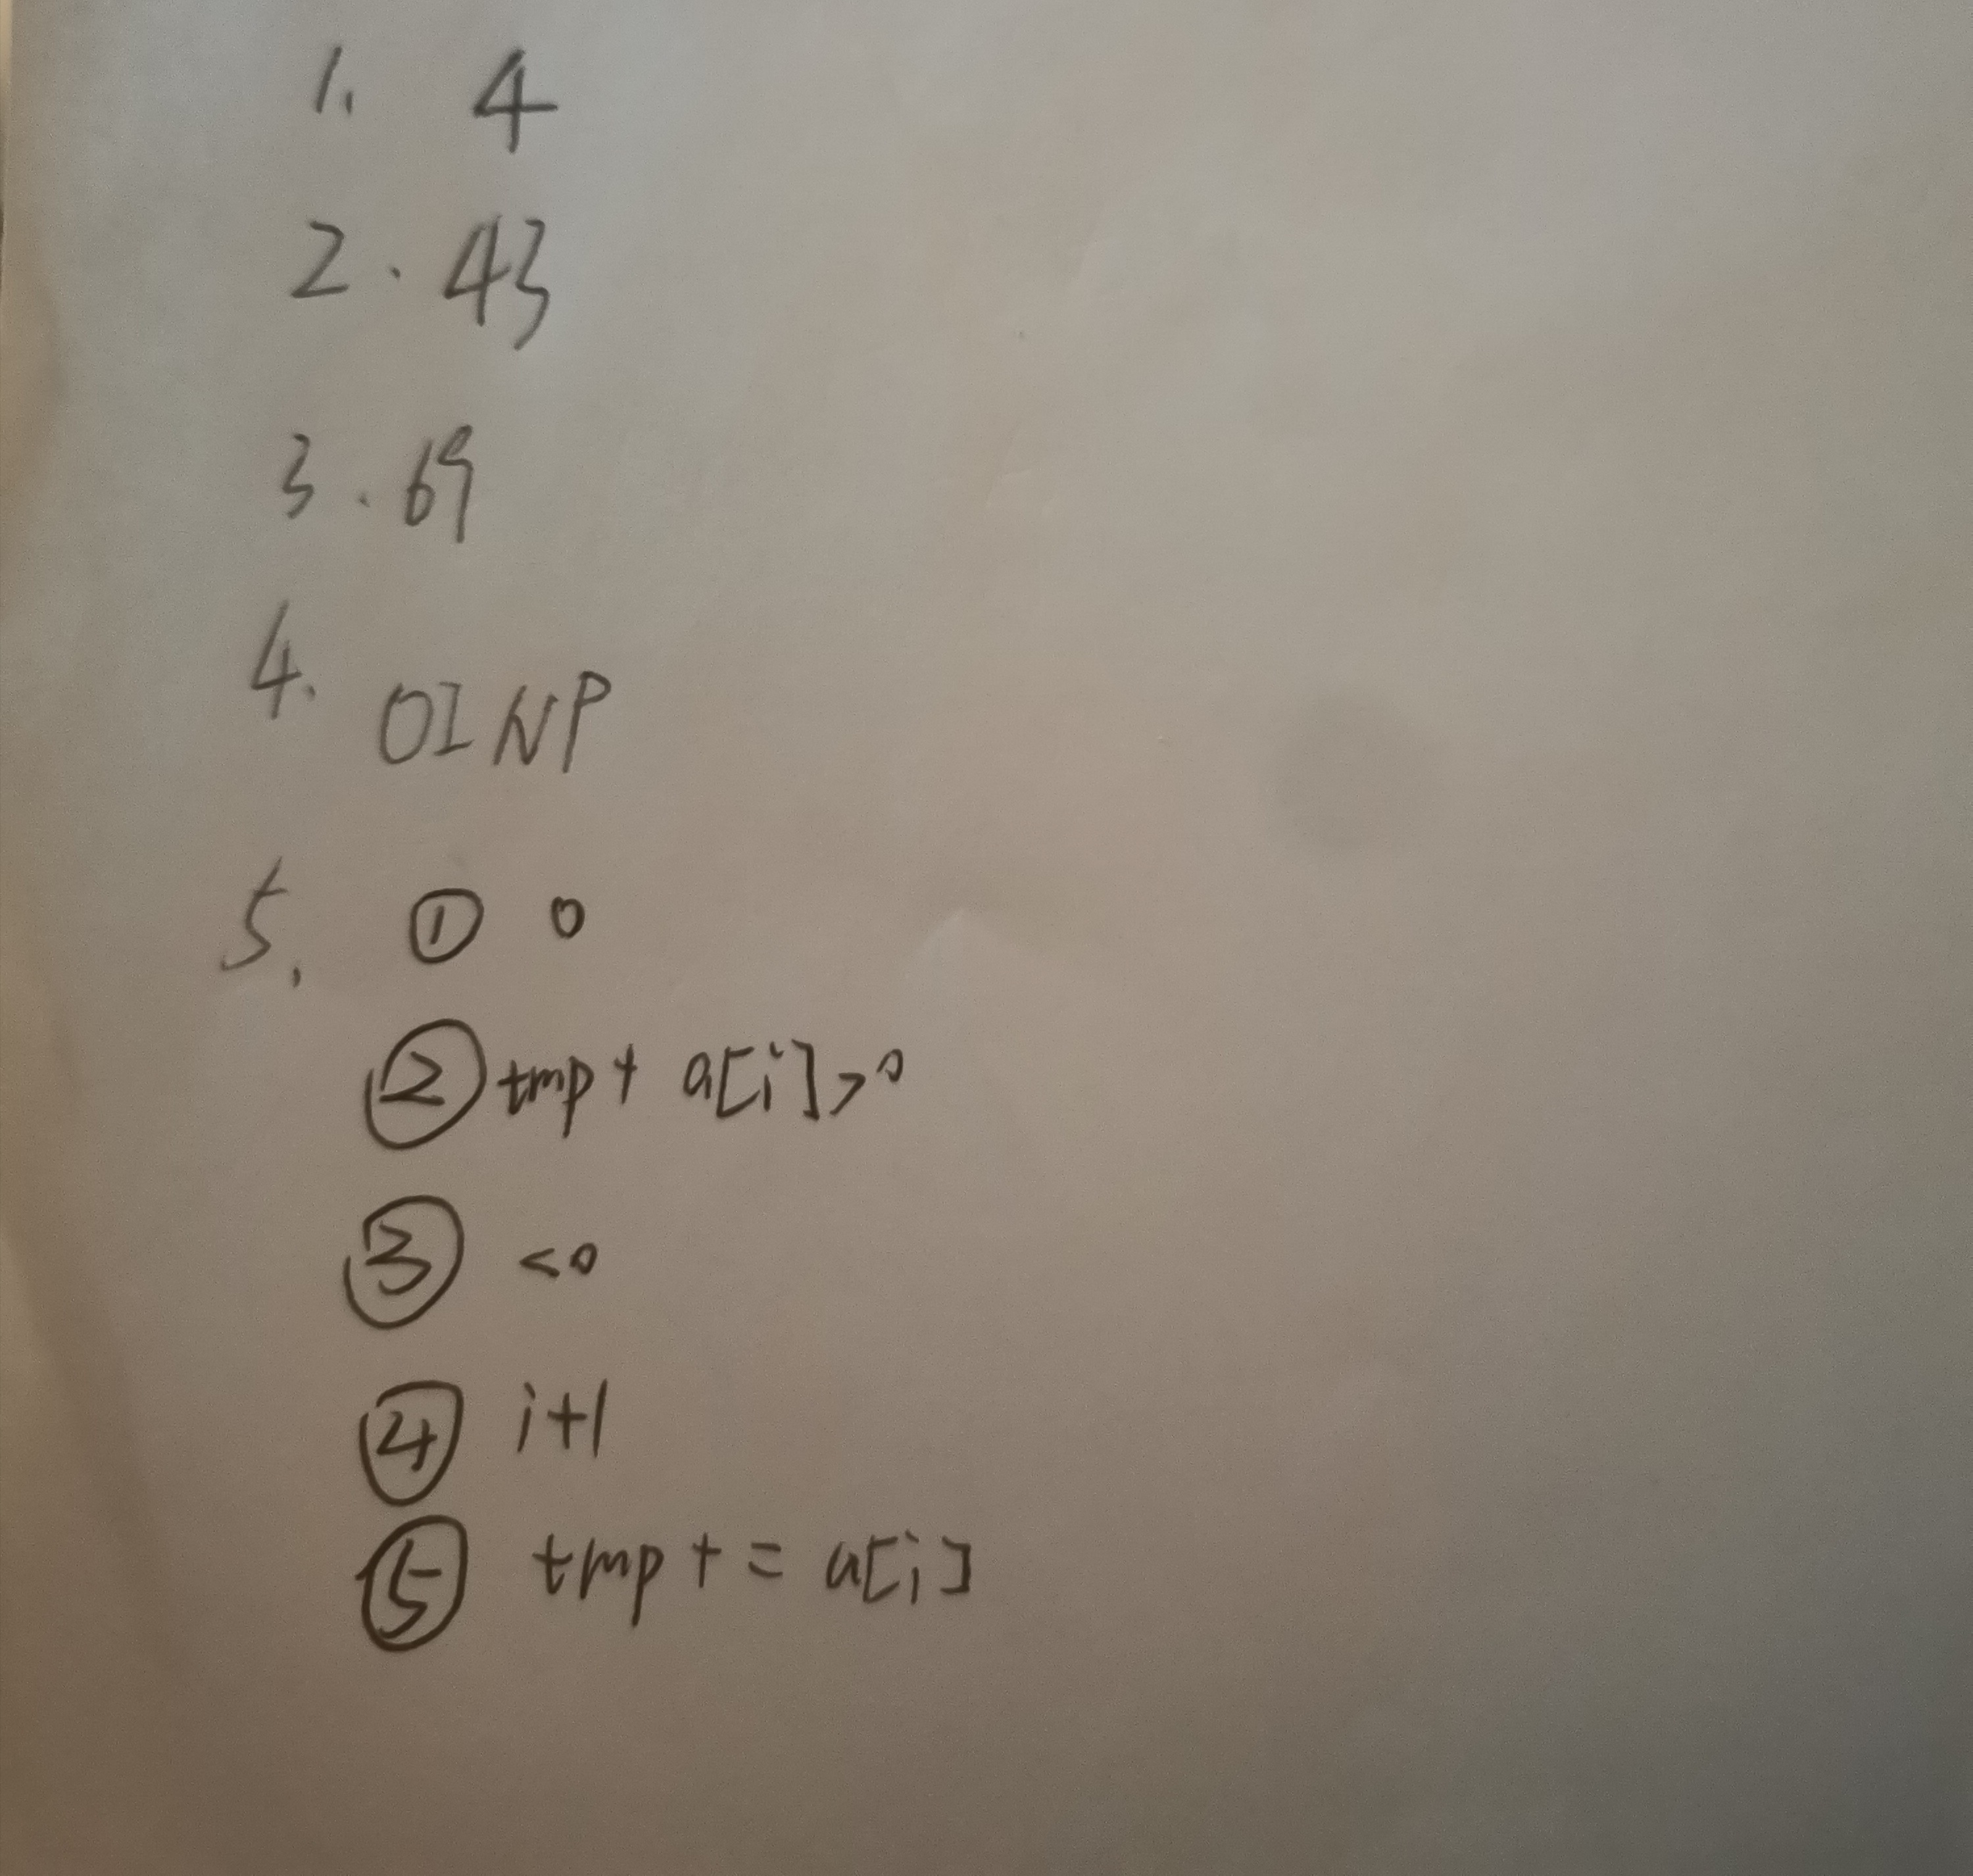 1. 4
2. 43
3. 69
4. OINP
5. ① 0
② tmp + a[i]>0
③ <0
④ i+1
⑤ tmp + = a[i]